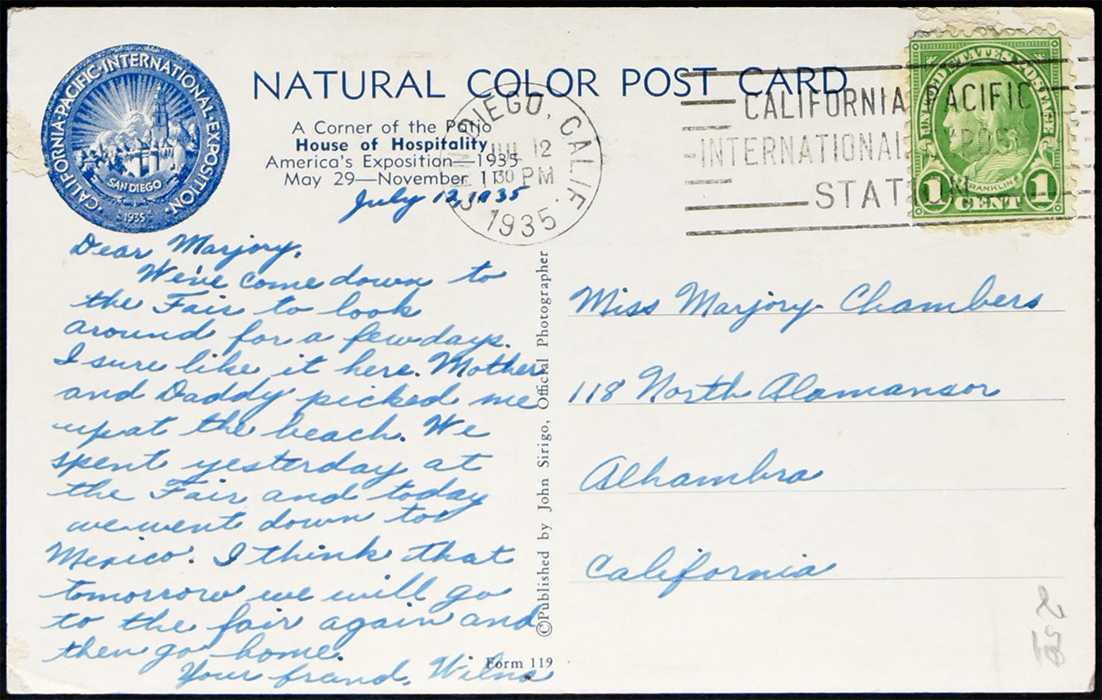 CALIFORNIA·PACIFIC·INTERNATIONAL·EXPOSITION·
SAN DIEGO
·1935·
NATURAL COLOR POST CARD
A Corner of the Patio
House of Hospitality
America's Exposition—1935
May 29—November 11
July 12, 1935
DIEGO, CALIF.
JUL 12
30 PM
1935
CALIFORNIA PACIFIC
INTERNATIONAL EXPOS
STATION
UNITED STATES POSTAGE
FRANKLIN
1 CENT 1
Dear Marjory,
We've come down to
the Fair to look
around for a few days.
I sure like it here. Mother
and Daddy picked me
up at the beach. We
spent yesterday at
the Fair and today
we went down to
Mexico. I think that
tomorrow we will go
to the fair again and
then go home.
Your friend, Wilna
©Published by John Sirigo, Official Photographer
Form 119
Miss Marjory Chambers
118 North Alamansor
Alhambra
California